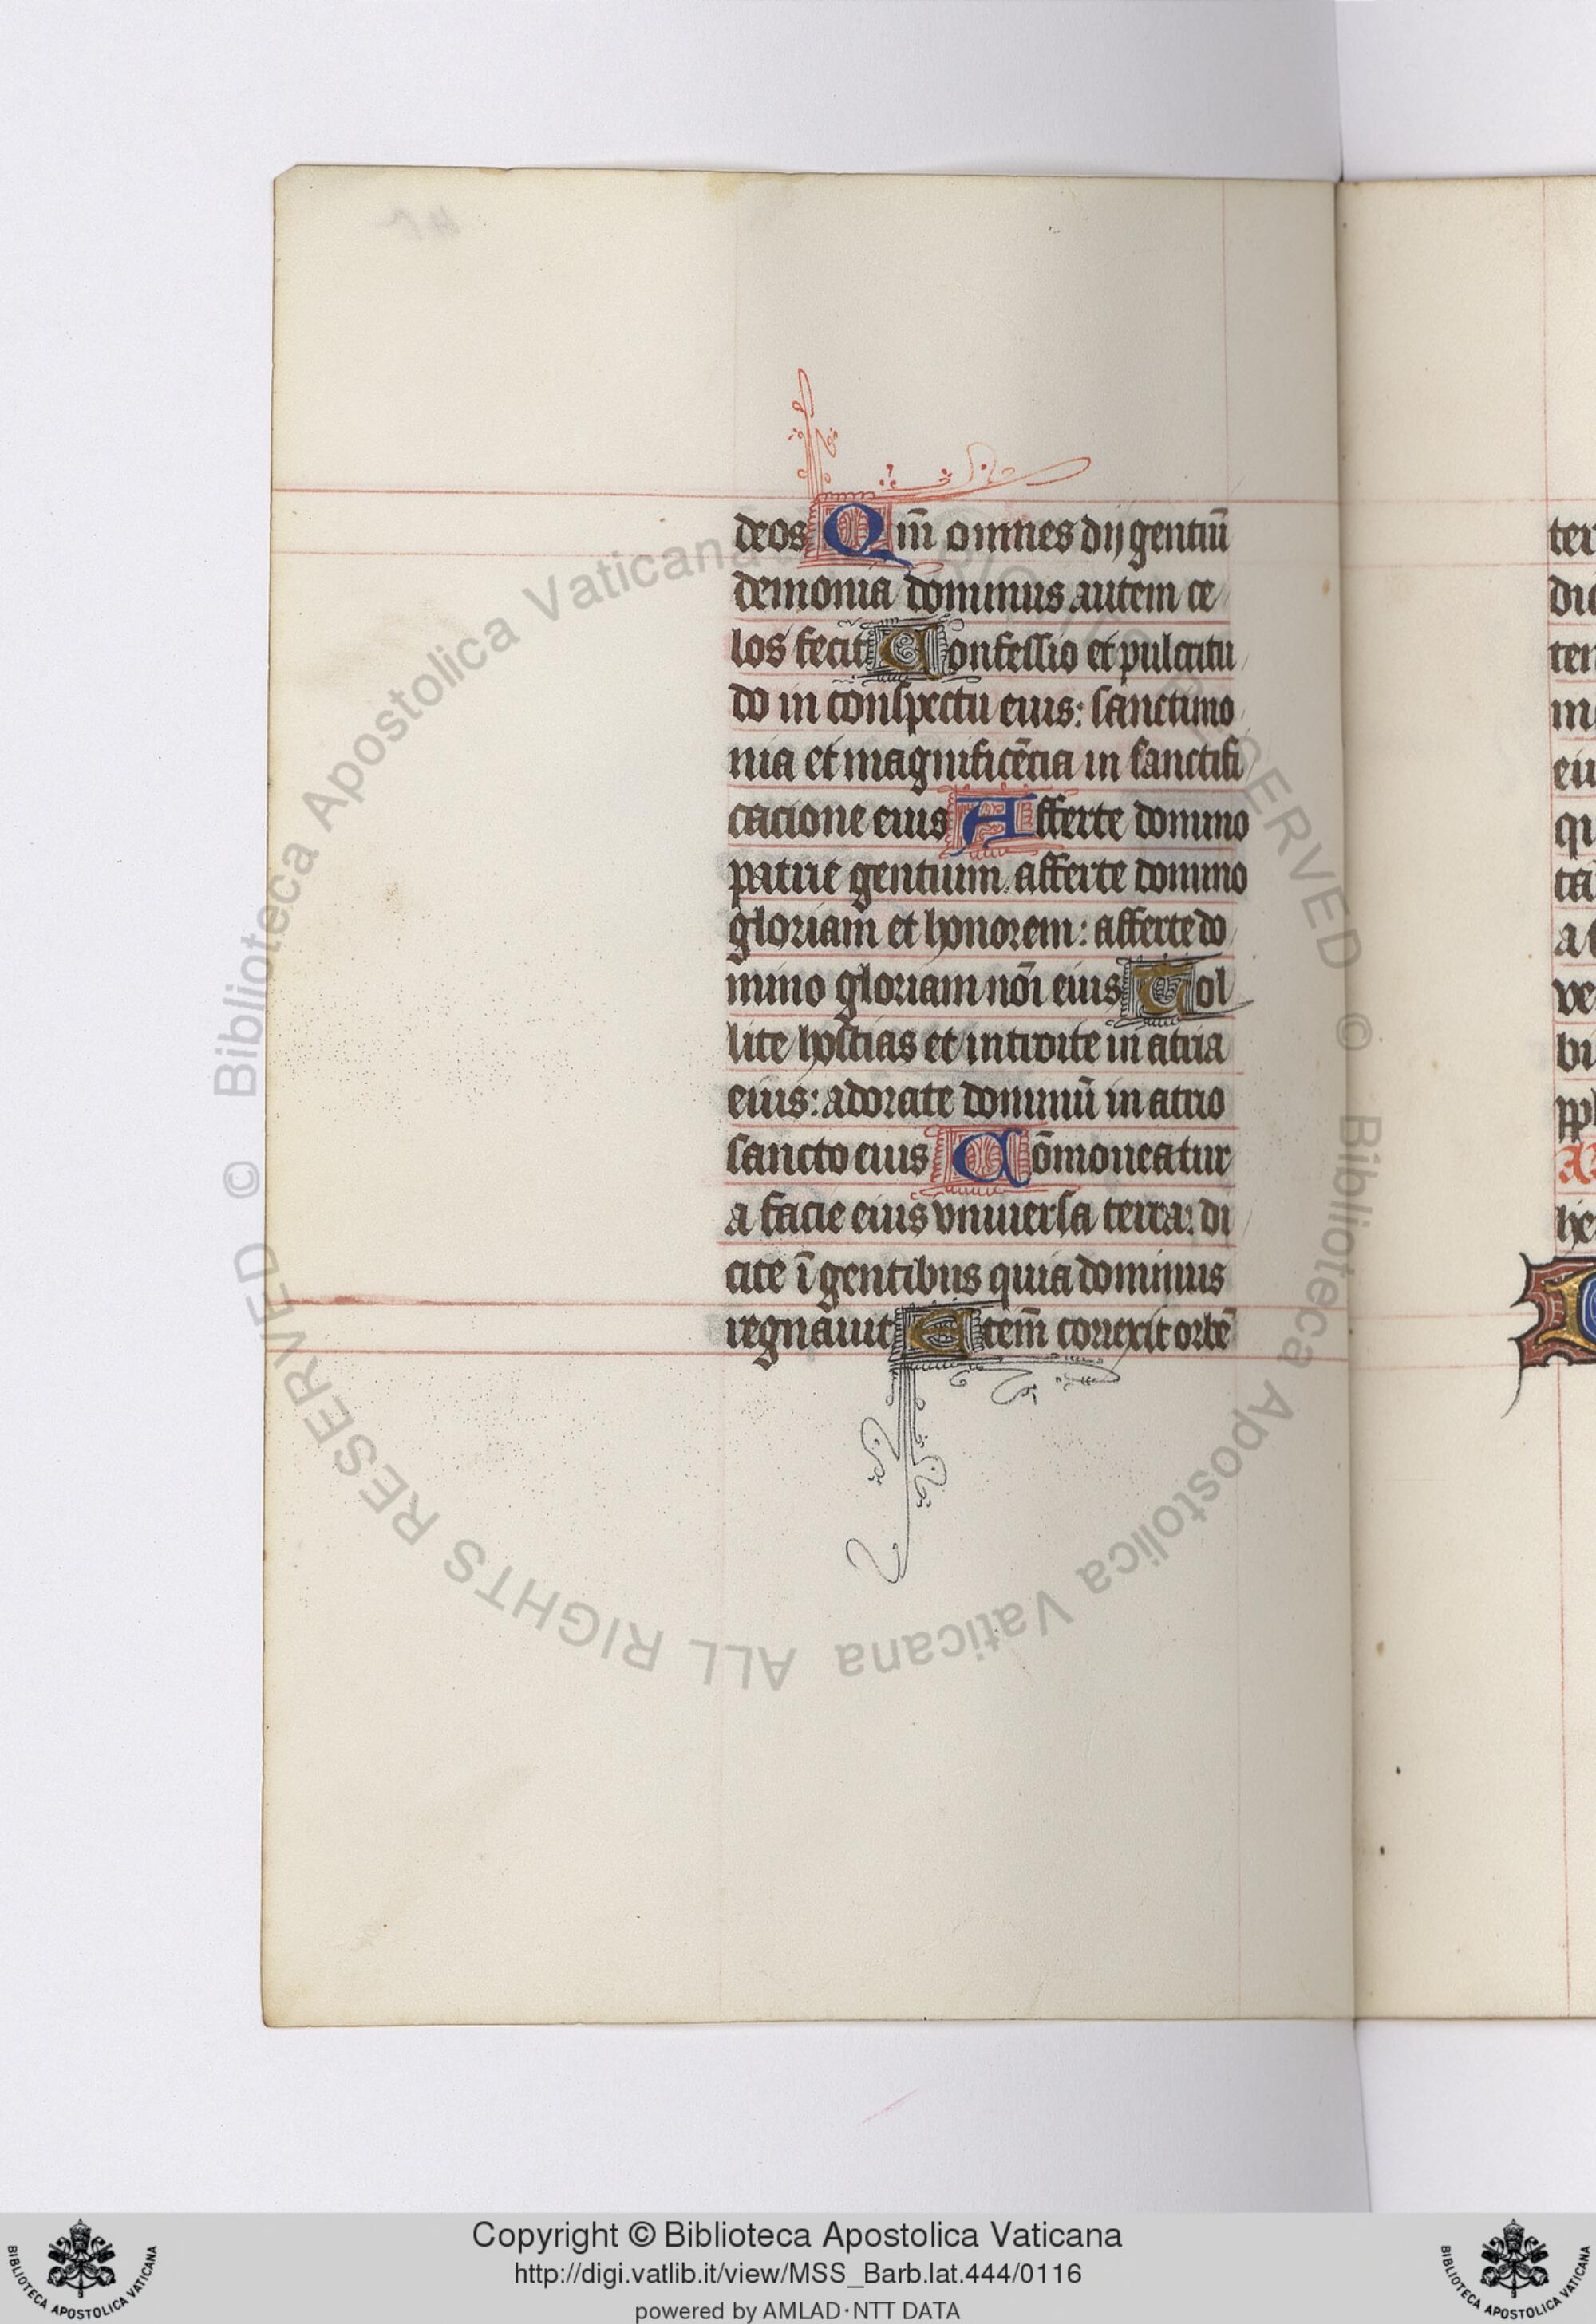 deos Qm̄ omnes dij gentiū
demonia dominus autem ce
los fecit Confessio et pulcritu
do in conspectu eius: sanctimo
nia et magnificēcia in sanctifi
cacione eius Afferte domino
patrie gentium. afferte domino
gloriam et honorem: afferte do
mino gloriam nōi eius Tol
lite hostias et introite in atria
eius: adorate dominū in atrio
sancto eius Cōmoueatur
a facie eius vniuersa terra: di
cite ī gentibus quia dominus
regnauit Etem̄ correxit orbē
ter
ten
eu
qu
ta
ve
bu
he
© Biblioteca Apostolica Vaticana ALL RIGHTS RESERVED © Biblioteca Apostolica Vaticana ALL RIGHTS RESERVED
Copyright © Biblioteca Apostolica Vaticana
http://digi.vatlib.it/view/MSS_Barb.lat.444/0116
powered by AMLAD·NTT DATA
BIBLIOTECA APOSTOLICA VATICANA
BIBLIOTECA APOSTOLICA VATICANA